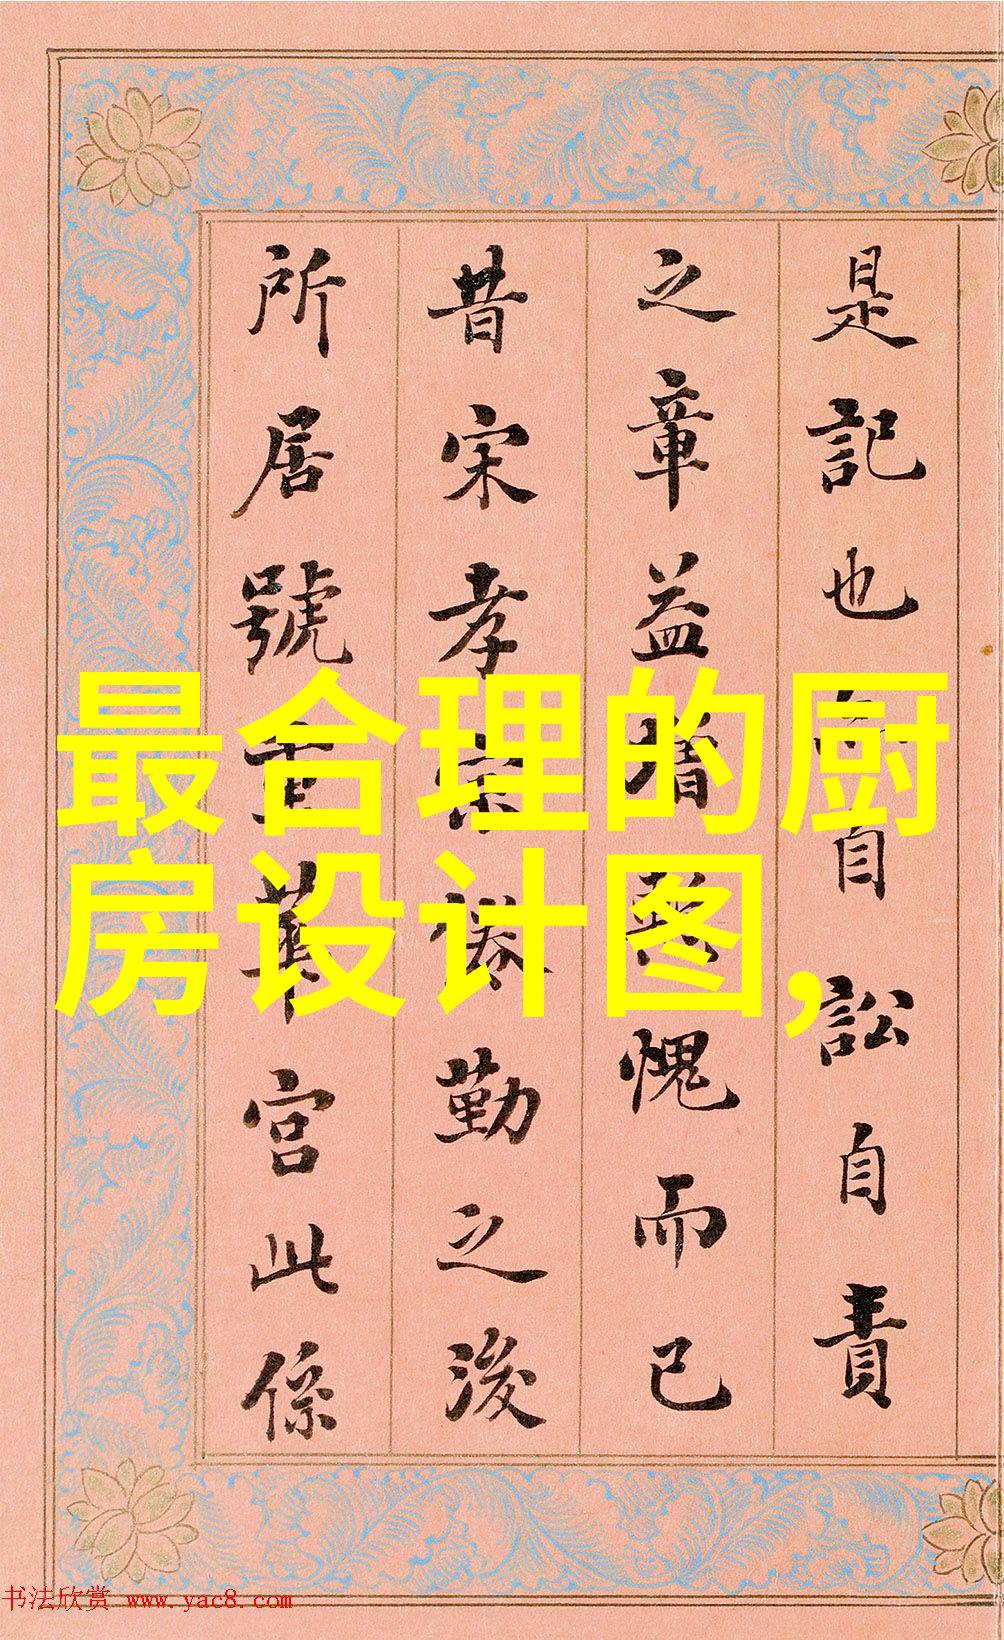 是記也
自訟自責
之章益增
愧而已
昔宋孝宗
勤之後
所居號重華宮此係
最合理的厨
房设计图,
书法欣赏 www.yac8.com